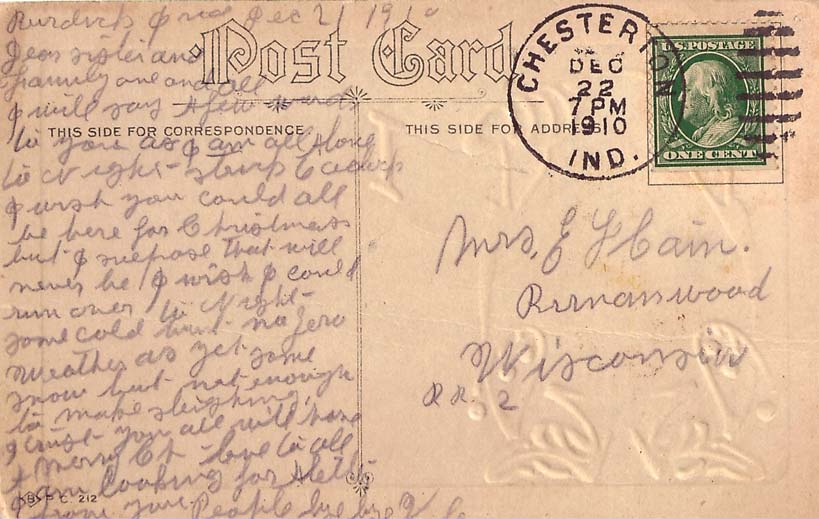 Burdick Ind Dec 21 1910
Dear sister and
family one and all
I will say a few words
to you as I am all alone
to Night
I wish you could all
be here for Christmas
but I supose that will
never be I wish I could
run over to Night
some cold but no Zero
Weather as yet some
snow but not enough
to make sleighing
I trust you all will have
A merry Ch love to all
I am looking for a letter
from you People bye bye
Post Card
THIS SIDE FOR CORRESPONDENCE
THIS SIDE FOR ADDRESS
CHESTERTON
DEC
22
7 PM
1910
IND.
U.S. POSTAGE
ONE CENT
Mrs, E F Cain.
Birnamwood
Wisconsin
RR. 2
P. C. 212